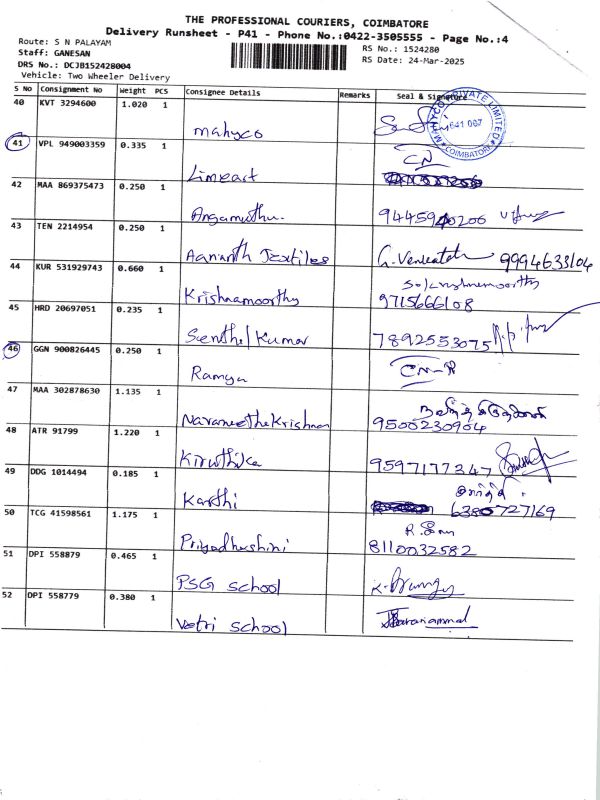 THE PROFESSIONAL COURIERS, COIMBATORE
Delivery Runsheet - P41 - Phone No.:0422-3505555 - Page No.:4
Route: S N PALAYAM
RS No.: 1524280
Staff: GANESAN
RS Date: 24-Mar-2025
DRS No.: DCJB152428004
Vehicle: Two Wheeler Delivery
S No Consignment No Weight PCS Consignee Details Remarks Seal & Signature
40 KVT 3294600 1.020 1
mahyco
MAHYCO PRIVATE LIMITED
641 007
COIMBATORE
41 VPL 949003359 0.335 1
CN
Limeact
42 MAA 869375473 0.250 1
Angamuthu. 9445940206
43 TEN 2214954 0.250 1
Aananth Textiles G. Venkatesh 9994633104
44 KUR 531929743 0.660 1
Krishnamoorthy 9715666108
45 HRD 20697051 0.235 1
Senthel Kumar 7892553075
46 GGN 900826445 0.250 1
Ramya CN-R
47 MAA 302878630 1.135 1
NavaneetheKrishnan 9500230904
48 ATR 91799 1.220 1
Kiruthika 9597177347
49 DDG 1014494 0.185 1
கார்த்தி
Karthi 6380727169
50 TCG 41598561 1.175 1
Priyadharshini 8110032582
51 DPI 558879 0.465 1
PSG school
52 DPI 558779 0.380 1
Vetri school